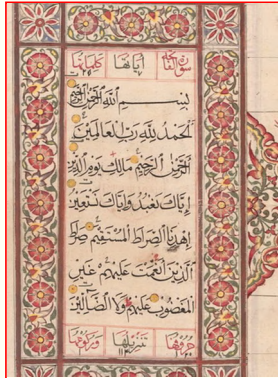 سورة الفاتحة اياتها كلماتها
بسم الله الرحمن الرحيم
الحمد لله رب العالمين
الرحمن الرحيم مالك يوم الدين
اياك نعبد واياك نستعين
اهدنا الصراط المستقيم صراط
الذين انعمت عليهم غير
المغضوب عليهم ولا الضالين
حروفها تنزيلها